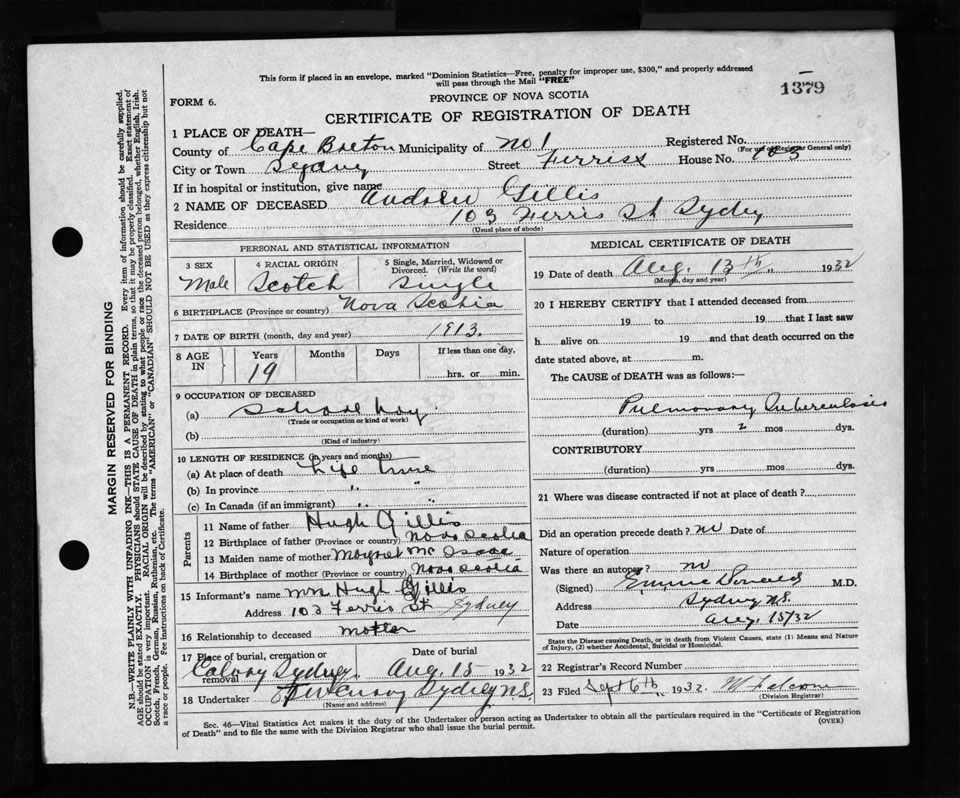 This form if placed in an envelope, marked "Dominion Statistics—Free, penalty for improper use, $300," and properly addressed
will pass through the Mail "FREE"
1379
PROVINCE OF NOVA SCOTIA
FORM 6.
CERTIFICATE OF REGISTRATION OF DEATH
1 PLACE OF DEATH—
County of Cape Breton Municipality of No 1 Registered No.
(For use of Registrar General only)
City or Town Sydney Street Ferriss House No. 103
If in hospital or institution, give name
2 NAME OF DECEASED Andrew Gillis
Residence 103 Ferris St Sydney
(Usual place of abode)
PERSONAL AND STATISTICAL INFORMATION
3 SEX Male
4 RACIAL ORIGIN Scotch
5 Single, Married, Widowed or Divorced. (Write the word) Single
6 BIRTHPLACE (Province or country) Nova Scotia
7 DATE OF BIRTH (month, day and year) 1913.
8 AGE IN Years 19 Months Days If less than one day, hrs. or min.
9 OCCUPATION OF DECEASED
(a) School boy
(Trade or occupation or kind of work)
(b)
(Kind of industry)
10 LENGTH OF RESIDENCE (in years and months)
(a) At place of death Life time
(b) In province " "
(c) In Canada (if an immigrant) " "
Parents
11 Name of father Hugh Gillis
12 Birthplace of father (Province or country) Nova Scotia
13 Maiden name of mother Margret Mc Isaac
14 Birthplace of mother (Province or country) Nova Scotia
15 Informant's name Mrs Hugh Gillis
Address 103 Ferris St Sydney
16 Relationship to deceased Mother
17 Place of burial, cremation or removal Calvary Sydney
Date of burial Aug. 15 1932
18 Undertaker Curry Sydney N.S.
(Name and address)
MEDICAL CERTIFICATE OF DEATH
19 Date of death Aug. 13th 1932
(Month, day and year)
20 I HEREBY CERTIFY that I attended deceased from
19 to 19 that I last saw
h alive on 19 and that death occurred on the
date stated above, at m.
The CAUSE of DEATH was as follows:—
Pulmonary Tuberculosis
(duration) yrs 2 mos dys.
CONTRIBUTORY
(duration) yrs mos dys.
21 Where was disease contracted if not at place of death?
Did an operation precede death? no Date of
Nature of operation
Was there an autopsy? no
(Signed) M.D.
Address Sydney N.S.
Date Aug. 15/32
State the Disease causing Death, or in death from Violent Causes, state (1) Means and Nature
of Injury, (2) whether Accidental, Suicidal or Homicidal.
22 Registrar's Record Number
23 Filed Sept 6th 1932.
(Division Registrar)
Sec. 46—Vital Statistics Act makes it the duty of the Undertaker or person acting as Undertaker to obtain all the particulars required in the "Certificate of Registration
of Death" and to file the same with the Division Registrar who shall issue the burial permit. (OVER)
MARGIN RESERVED FOR BINDING
N.B.—WRITE PLAINLY WITH UNFADING INK—THIS IS A PERMANENT RECORD. Every item of information should be carefully supplied.
AGE should be stated EXACTLY. PHYSICIANS should STATE CAUSE OF DEATH in plain terms, so that it may be properly classified. Exact statement of
OCCUPATION is very important. RACIAL ORIGIN will be described by stating to what people or race the deceased person belonged, whether English, Irish,
Scotch, French, German, Russian, Ruthenian, etc. The terms "AMERICAN" or "CANADIAN" SHOULD NOT BE USED as they express citizenship but not
a race or people. Fee instructions on back of Certificate.